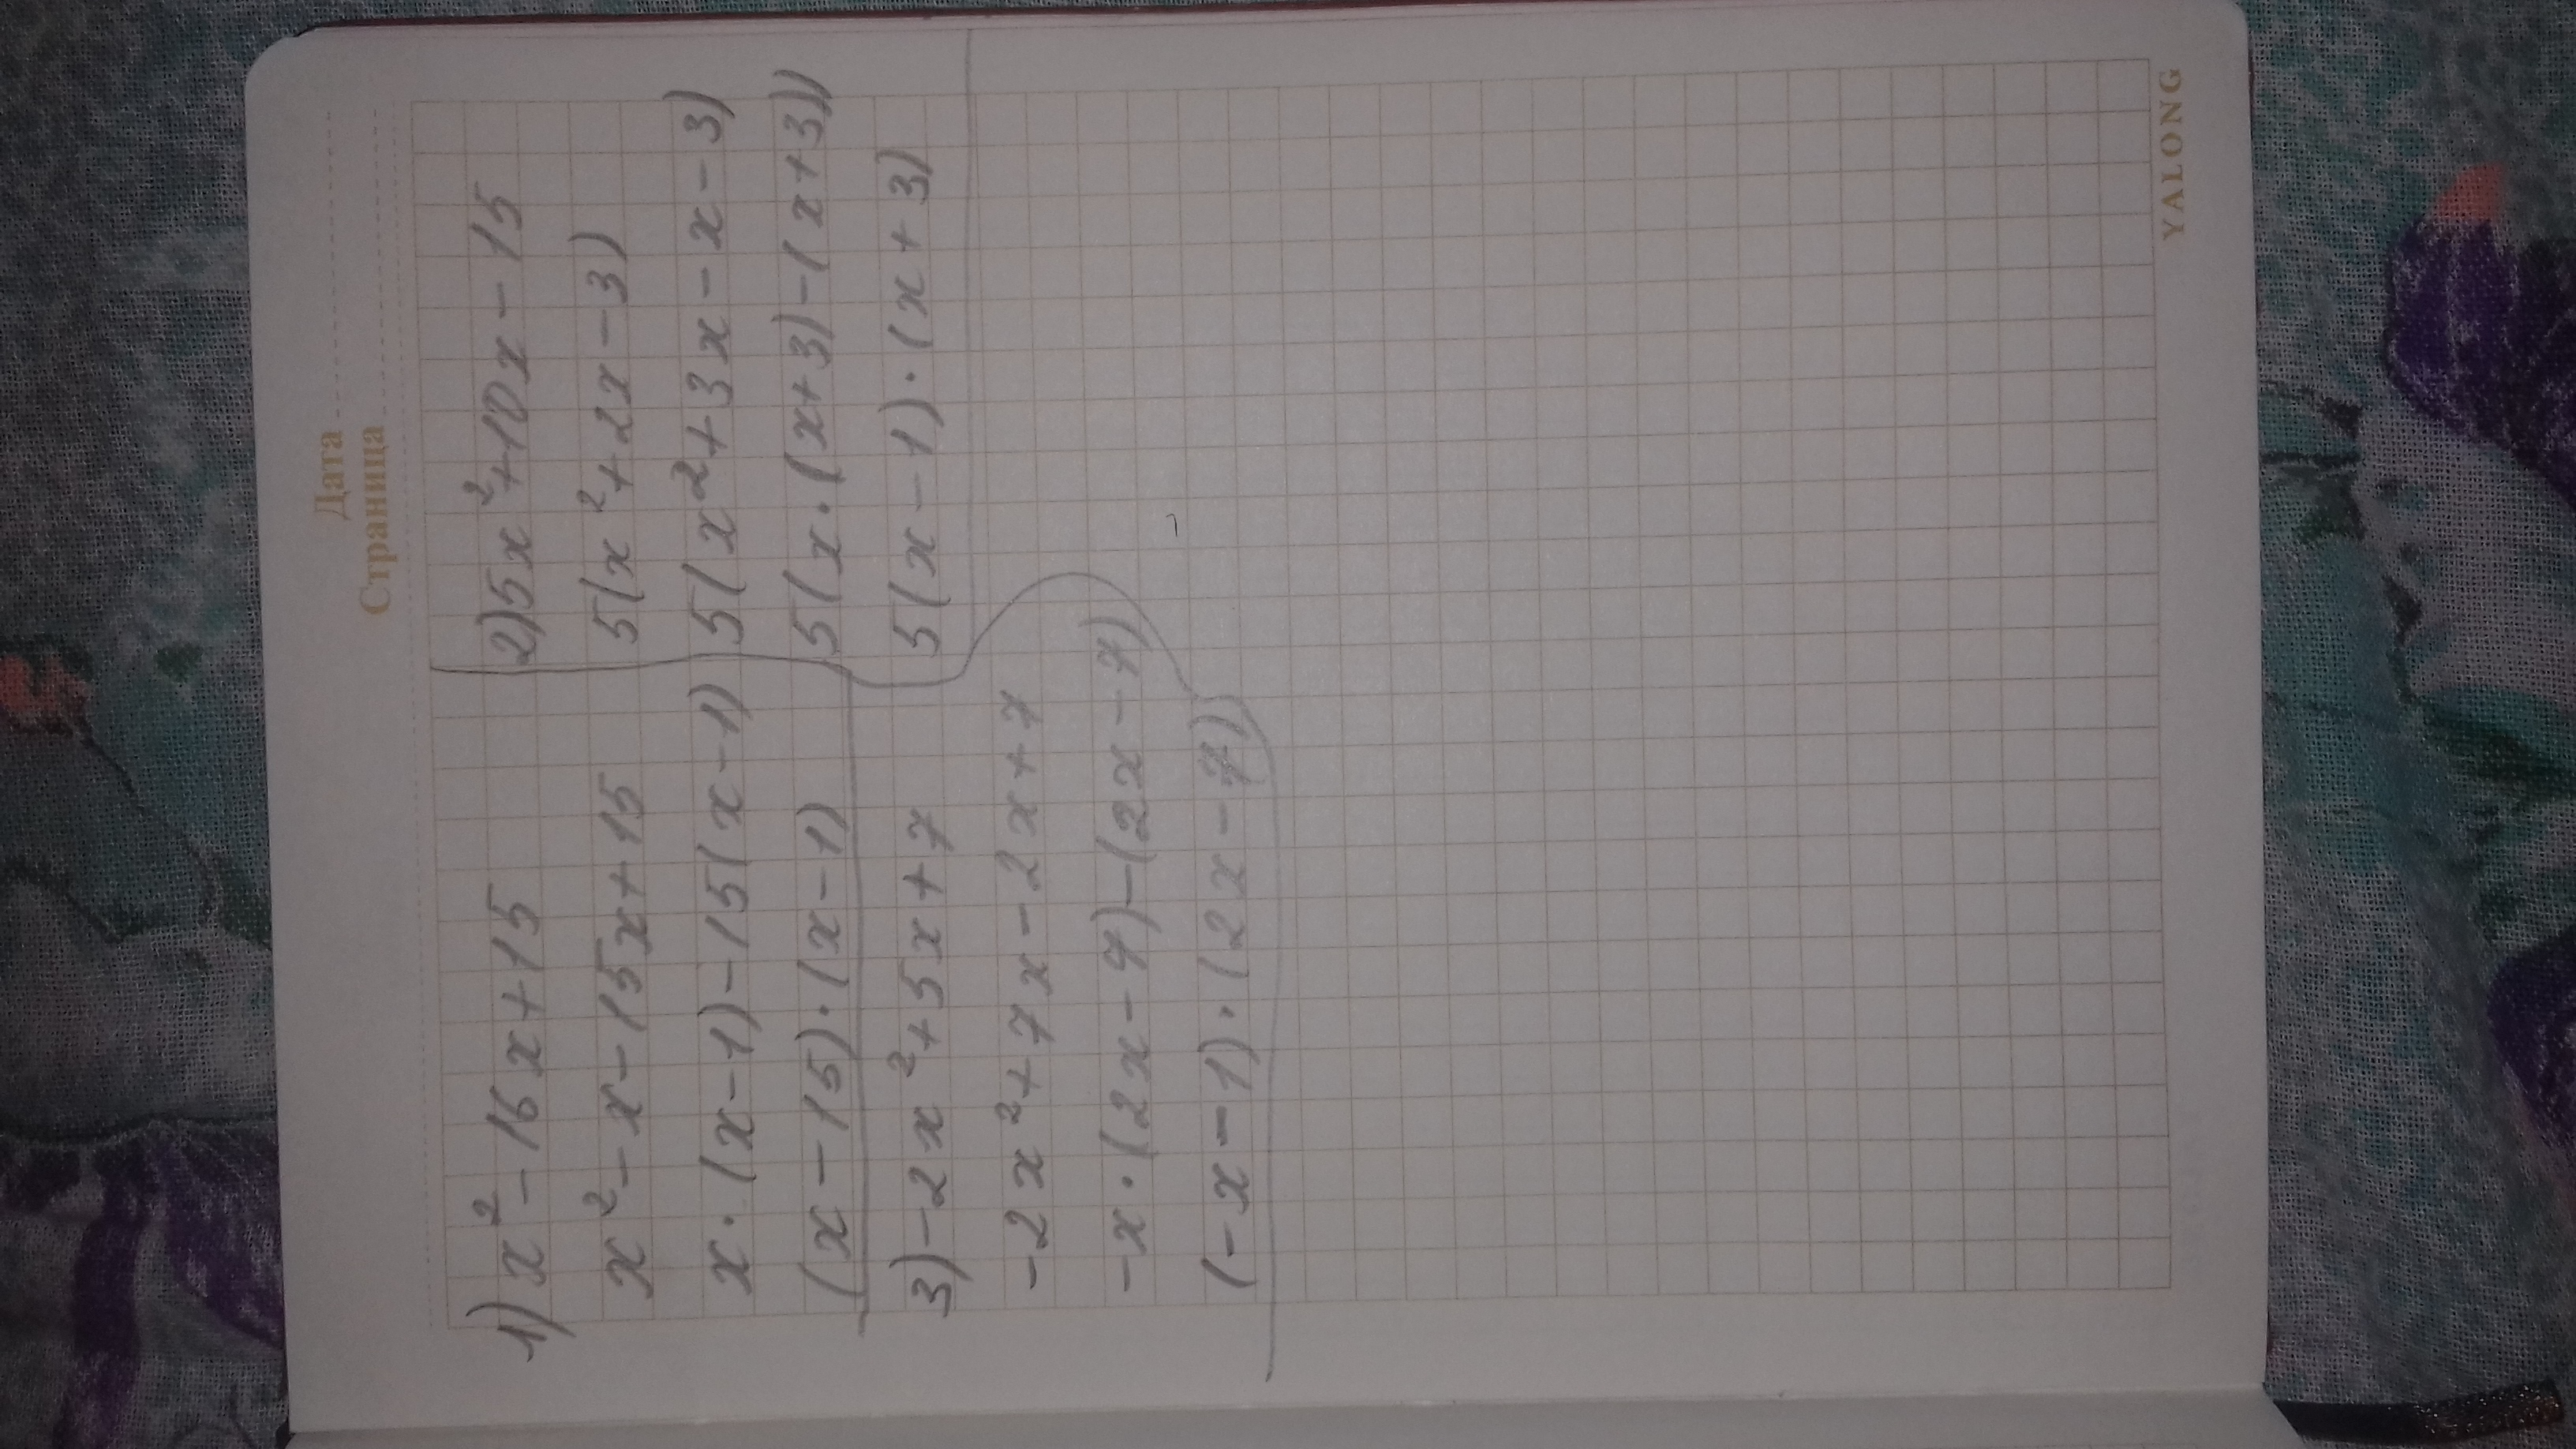 Дата
Страница
1) x² - 16x + 15
x² - x - 15x + 15
x · (x - 1) - 15(x - 1)
(x - 15) · (x - 1)
2) 5x² + 10x - 15
5(x² + 2x - 3)
5(x² + 3x - x - 3)
5(x · (x + 3) - 1(x + 3))
5(x - 1) · (x + 3)
3) -2x² + 5x + 7
-2x² + 7x - 2x + 7
-x · (2x - 7) - (2x - 7)
(-x - 1) · (2x - 7)
YALONG